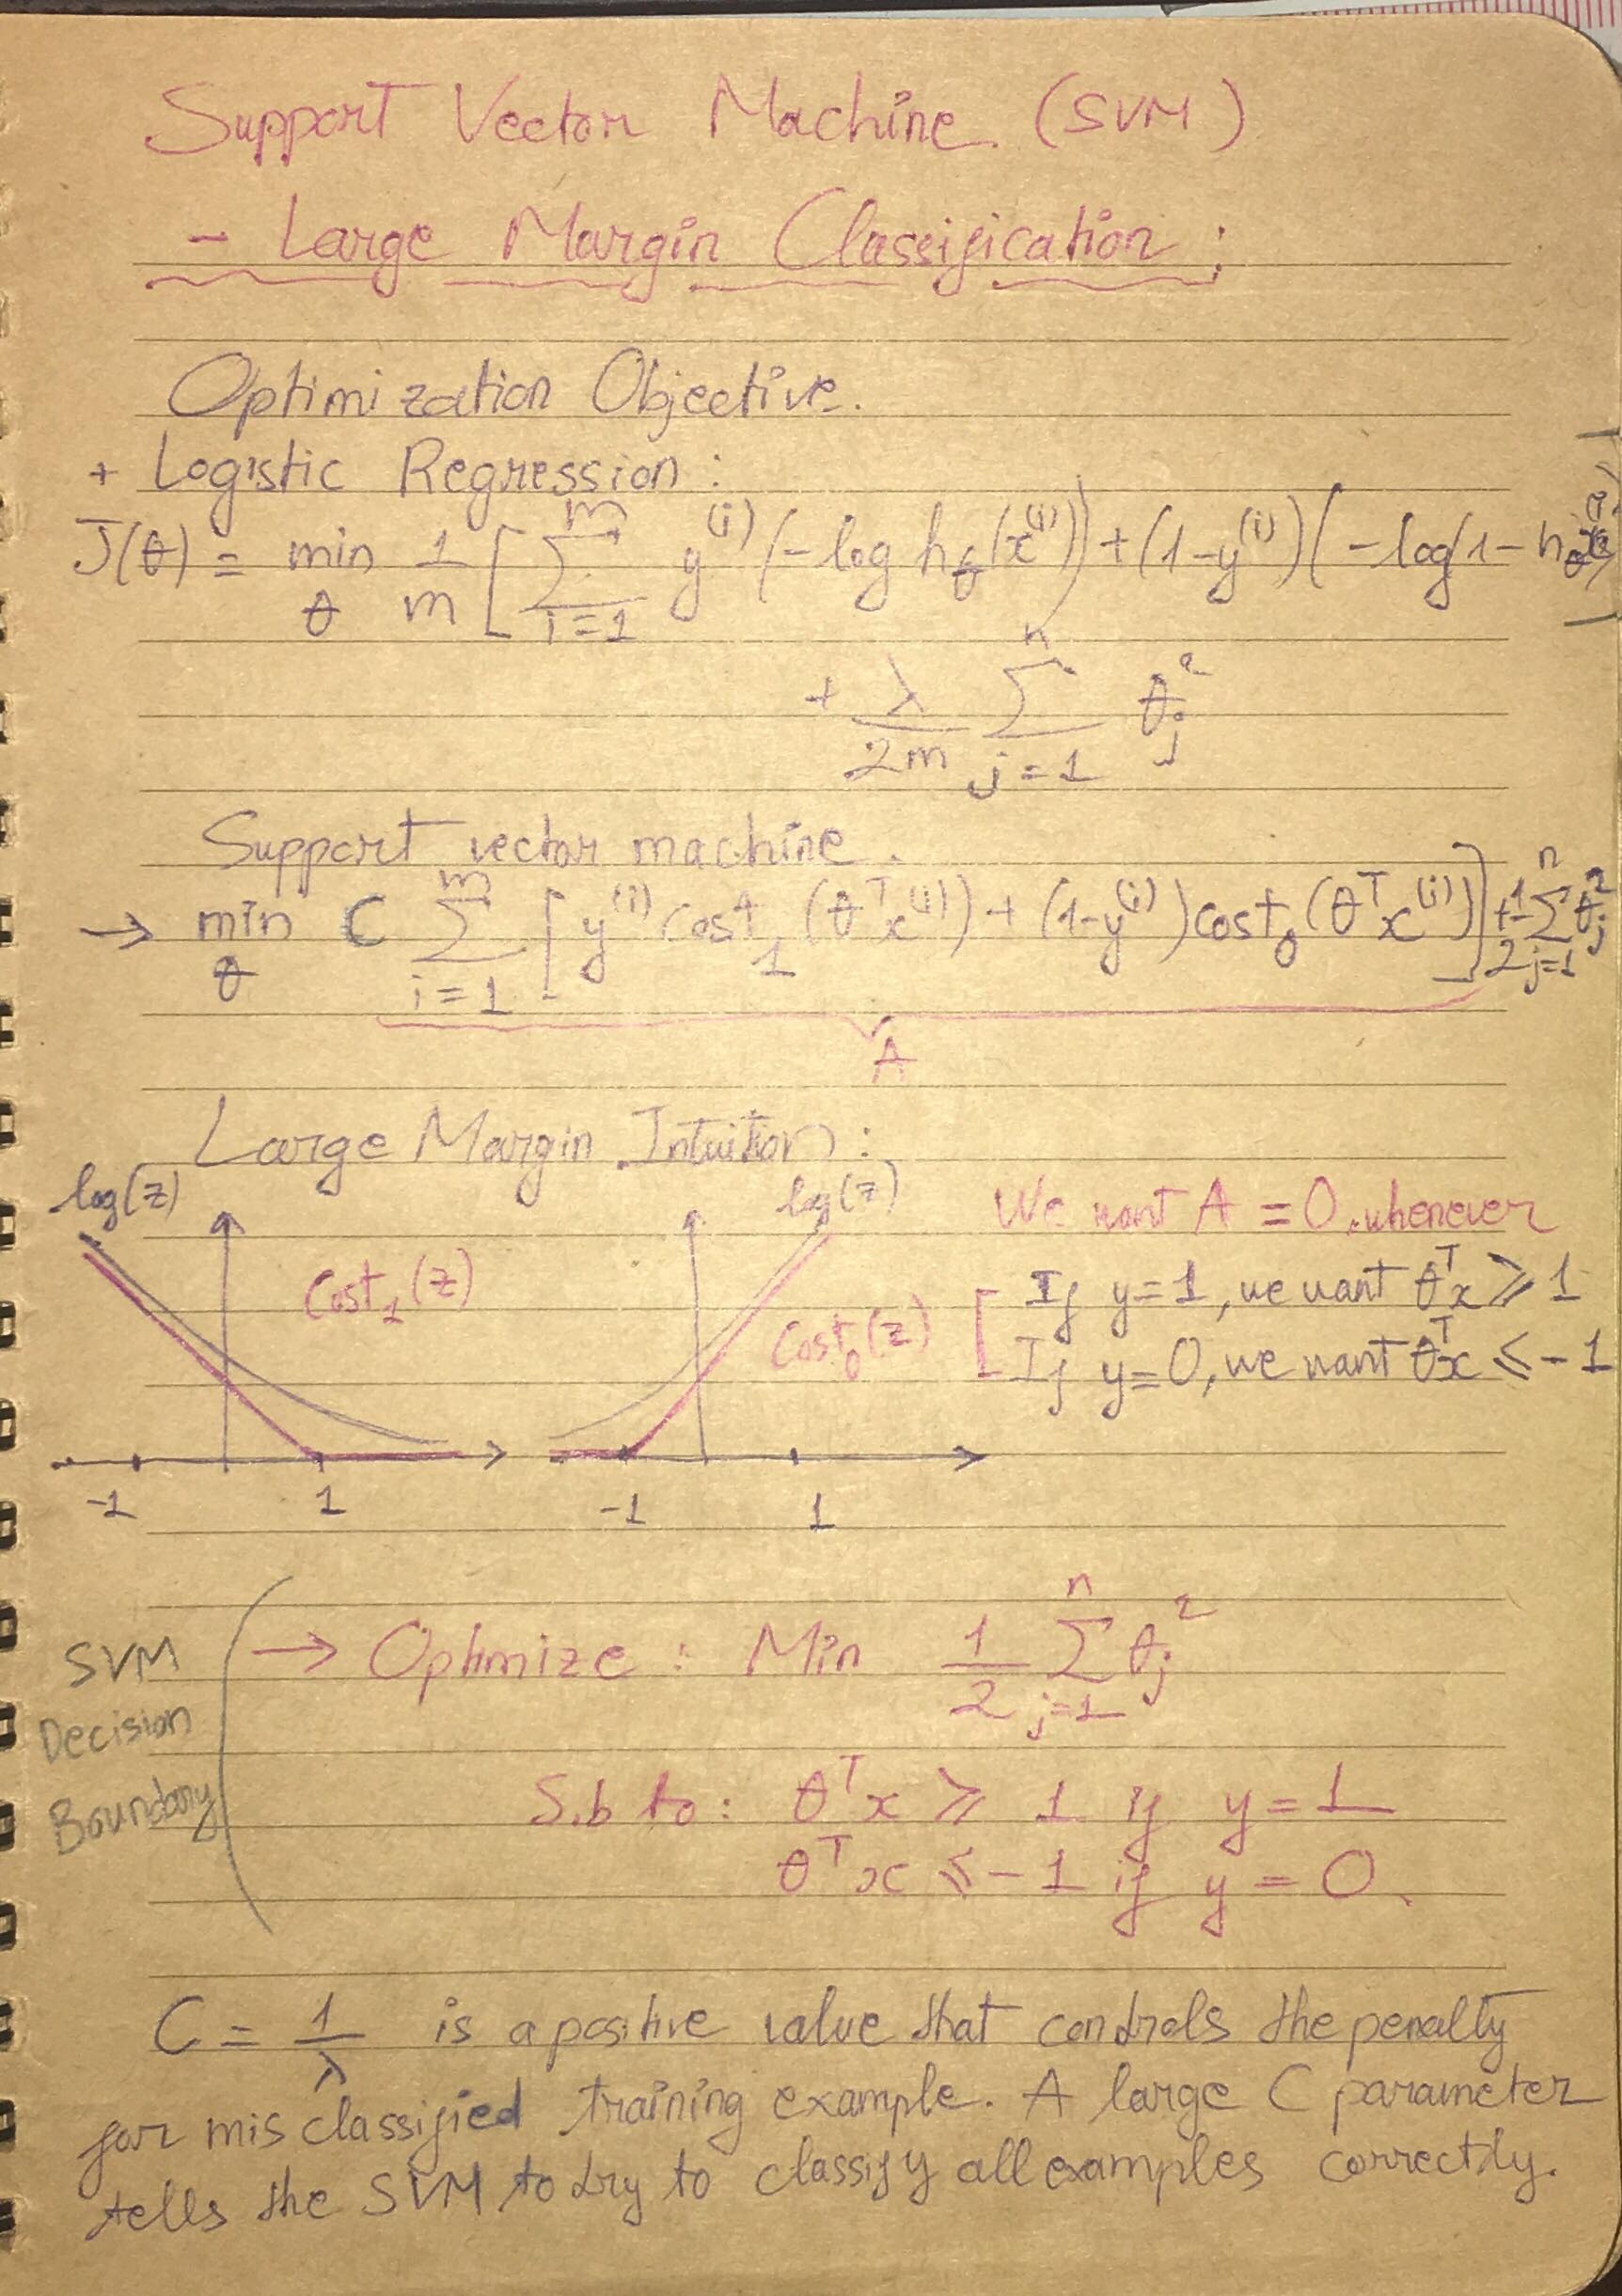 Support Vector Machine (SVM)
- Large Margin Classification:
Optimization Objective.
+ Logistic Regression:
J(θ) = min_θ 1/m [ Σ_{i=1}^{m} y^(i) (-log h_θ(x^(i))) + (1-y^(i)) (-log(1-h_θ(x^(i)))) ]
+ λ/2m Σ_{j=1}^{n} θ_j^2
Support vector machine.
→ min_θ C Σ_{i=1}^{m} [ y^(i) cost_1 (θ^T x^(i)) + (1-y^(i)) cost_0 (θ^T x^(i)) ] + 1/2 Σ_{j=1}^{n} θ_j^2
A
Large Margin Intuition:
log(z) log(z) We want A = 0, whenever
Cost_1(z) Cost_0(z) [ If y=1, we want θ^T x ≥ 1
If y=0, we want θ^T x ≤ -1
-1 1 -1 1
SVM
Decision
Boundary
→ Optimize: Min 1/2 Σ_{j=1}^{n} θ_j^2
S.b to: θ^T x ≥ 1 if y = 1
θ^T x ≤ -1 if y = 0.
C = 1/λ is a positive value that controls the penalty
for misclassified training example. A large C parameter
tells the SVM to try to classify all examples correctly.